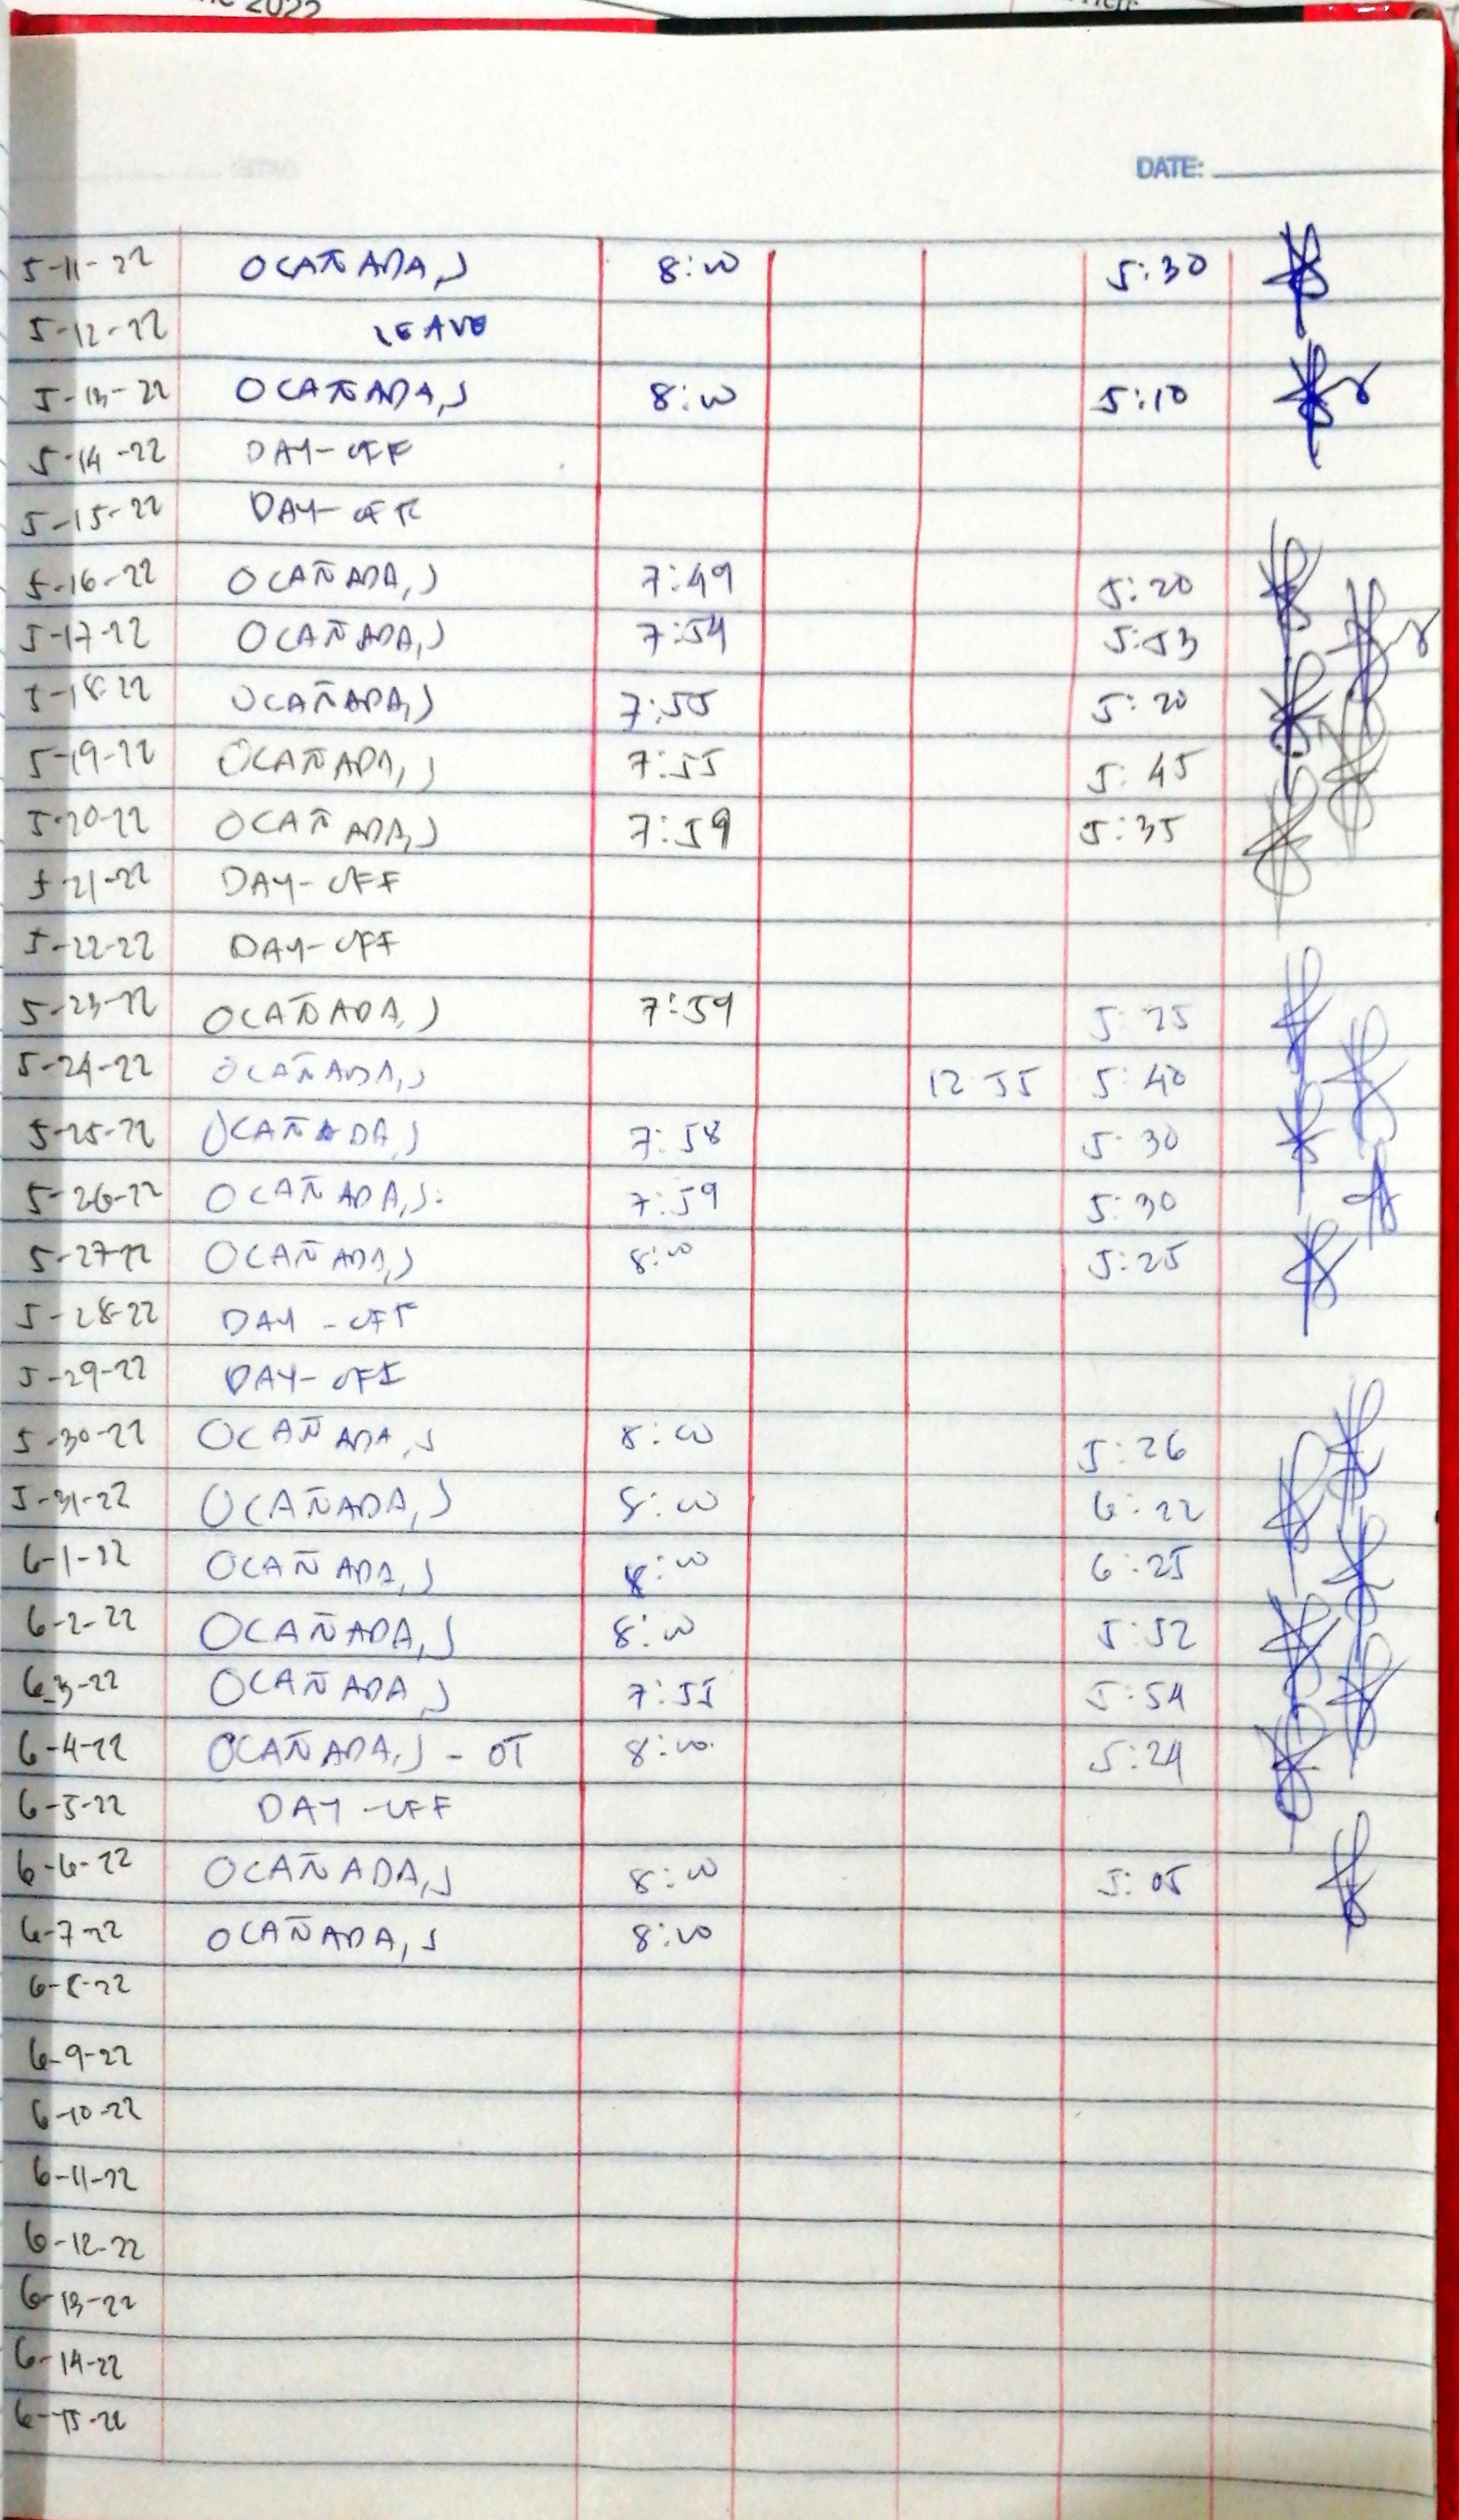 2022
DATE:
5-11-22 OCAÑADA, J 8:00 5:30
5-12-22 LEAVE
5-13-22 OCAÑADA, J 8:00 5:10
5-14-22 DAY-OFF
5-15-22 DAY-OFF
5-16-22 OCAÑADA, J 7:49 5:20
5-17-22 OCAÑADA, J 7:54 5:53
5-18-22 OCAÑADA, J 7:55 5:20
5-19-22 OCAÑADA, J 7:55 5:45
5-20-22 OCAÑADA, J 7:59 5:35
5-21-22 DAY-OFF
5-22-22 DAY-OFF
5-23-22 OCAÑADA, J 7:59 5:25
5-24-22 OCAÑADA, J 12:55 5:40
5-25-22 OCAÑADA, J 7:58 5:30
5-26-22 OCAÑADA, J. 7:59 5:30
5-27-22 OCAÑADA, J 8:00 5:25
5-28-22 DAY-OFF
5-29-22 DAY-OFF
5-30-22 OCAÑADA, J 8:00 5:26
5-31-22 OCAÑADA, J 8:00 6:22
6-1-22 OCAÑADA, J 8:00 6:25
6-2-22 OCAÑADA, J 8:00 5:52
6-3-22 OCAÑADA, J 7:55 5:54
6-4-22 OCAÑADA, J - OT 8:00 5:24
6-5-22 DAY-OFF
6-6-22 OCAÑADA, J 8:00 5:05
6-7-22 OCAÑADA, J 8:00
6-8-22
6-9-22
6-10-22
6-11-22
6-12-22
6-13-22
6-14-22
6-15-22